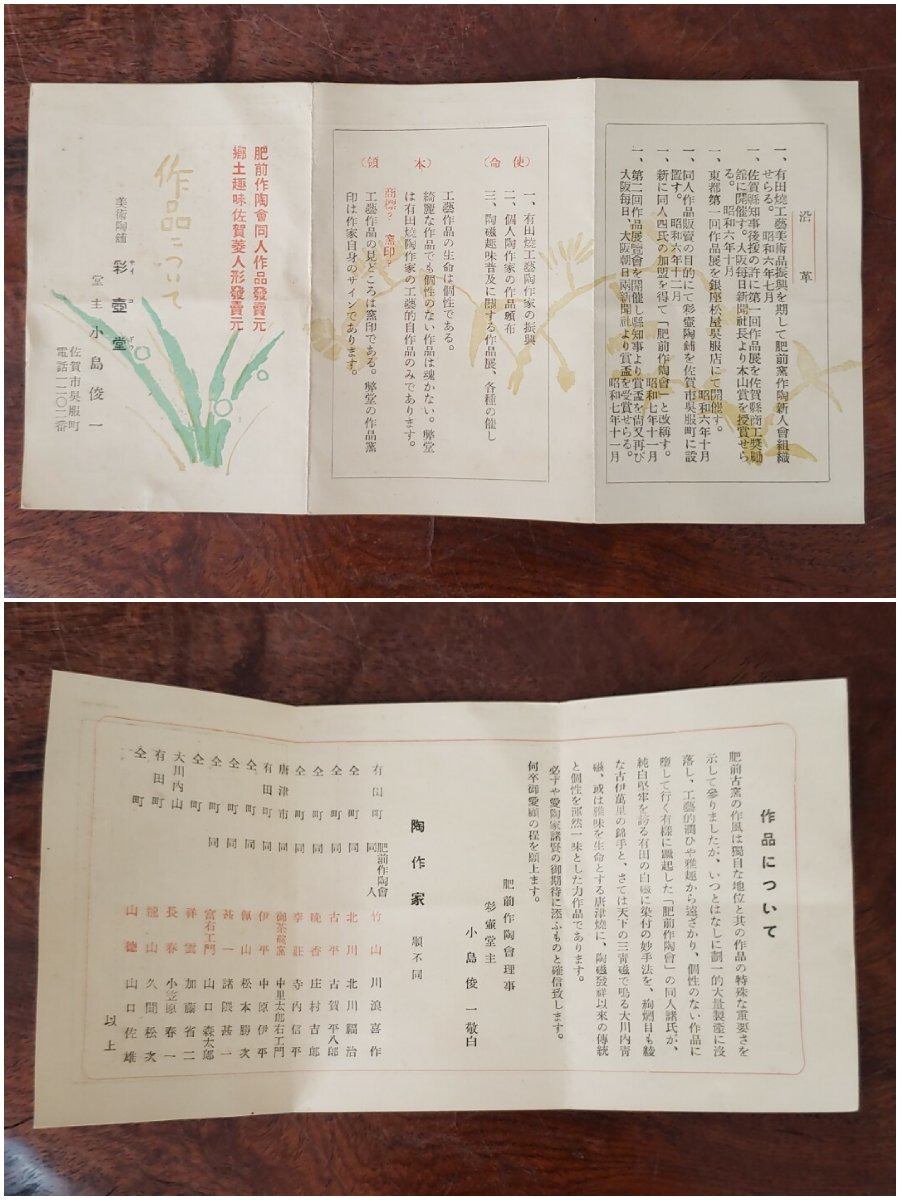 沿革
一、有田燒工藝美術品振興を期して肥前窯作陶新人會組織
せらる。 昭和六年七月
一、佐賀縣知事後援の許に第一回作品展を佐賀縣商工獎勵
館に開催す。大阪每日新聞社長より本山賞を授賞せら
る。 昭和六年十月
一、東都第一回作品展を銀座松屋吳服店にて開催す。
昭和六年十月
一、同人作品販賣の目的にて彩壺陶舖を佐賀市吳服町に設
置す。 昭和六年十二月
一、新に同人四氏の加盟を得て「肥前作陶會」と改稱す。
昭和七年十一月
一、第二回作品展覽會を開催し縣知事より賞盃を尙又再び
大阪每日、大阪朝日兩新聞社より賞盃を受賞せらる。
昭和七年十一月
(使命)
一、有田燒工藝陶作家の振興
二、個人陶作家の作品頒布
三、陶磁趣味普及に關する作品展、各種の催し
(本領)
工藝作品の生命は個性である。
綺麗な作品でも個性のない作品は魂がない。弊堂
は有田燒陶作家の工藝的自作品のみであります。
商標?窯印?
工藝作品の見どころは窯印である。弊堂の作品窯
印は作家自身のサインであります。
肥前作陶會同人作品發賣元
鄕土趣味佐賀菱人形發賣元
作品について
美術陶舖 彩壺堂
サイ コ ダウ
堂主 小島俊一
佐賀市吳服町
電話一二〇二番
作品について
肥前古窯の作風は獨自な地位と其の作品の特殊な重要さを
示して參りましたが、いつとはなしに劃一的大量製產に沒
落し、工藝的潤ひや雅趣から遠ざかり、個性のない作品に
墮して行く有樣に蹶起した「肥前作陶會」の同人諸氏が、
純白堅牢を誇る有田の白磁に染付の妙手法を、絢爛目も綾
な古伊萬里の錦手と、さては天下の三靑磁で鳴る大川內靑
磁、或は雅味を生命とする唐津燒に、陶磁發祥以來の傳統
と個性を渾然一味とした力作品であります。
必ずや愛陶家諸賢の御期待に添ふものと確信致します。
何卒御愛顧の程を願上ます。
肥前作陶會理事
彩壺堂主
小島俊一敬白
陶作家 順不同
有田町 肥前作陶會同人 竹山 川浪喜作
仝町 同 北川 北川繝治
仝町 同 古平 古賀平八郎
仝町 同 晩香 庄村吉郎
仝町 同 李莊 寺內信平
唐津市 同 御茶碗窯 中里太郎右エ門
有田町 同 伊平 中原伊平
仝町 同 佩山 松本勝次
仝町 同 甚一 諸隈甚一
仝町 同 富右エ門 山口森太郎
仝町 祥雲 加藤省二
仝町 長春 小笠原春一
大川內山 龍山 久間松次
有田町
仝町 山德 山口佐雄
以上